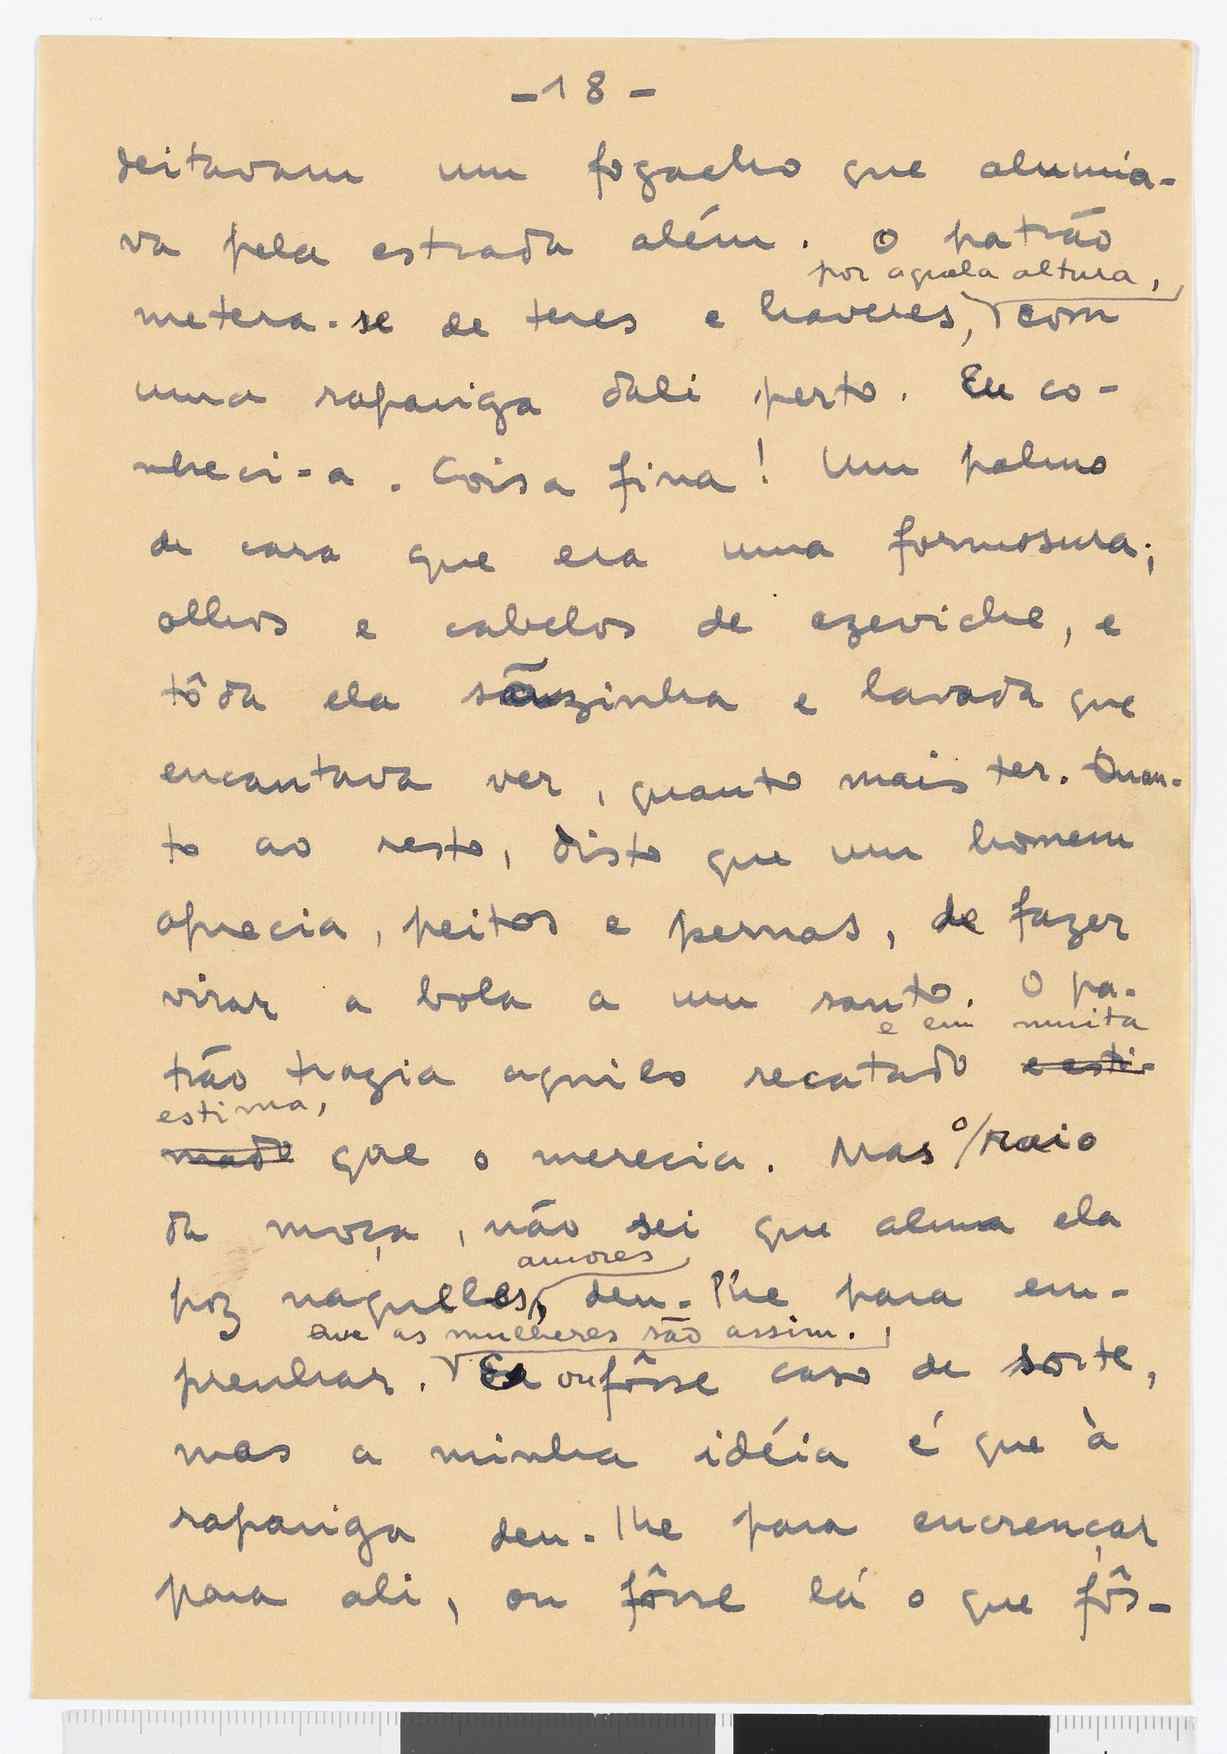 -18-
deitavam um fogacho que alumia-
va pela estrada além. O patrão
por aquela altura,
metera-se de teres e haveres, com
uma rapariga dali perto. Eu co-
nheci-a. Coisa fina! Um palmo
de cara que era uma formosura;
olhos e cabelos de azeviche, e
tôda ela sãozinha e lavada que
encantava ver, quanto mais ter. Quan-
to ao resto, disto que um homem
aprecia, peitos e pernas, de fazer
virar a bola a um santo. O pa-
e em muita
trão trazia aquilo recatado e esti-
estima,
mado que o merecia. Mas o/raio
da moça, não sei que alma ela
amores
poz naquelles, deu-lhe para em-
que as mulheres são assim.
prenhar. ou fôsse caso de sorte,
mas a minha idéia é que à
rapariga deu-lhe para encrençar
para ali, ou fôsse lá o que fôs-